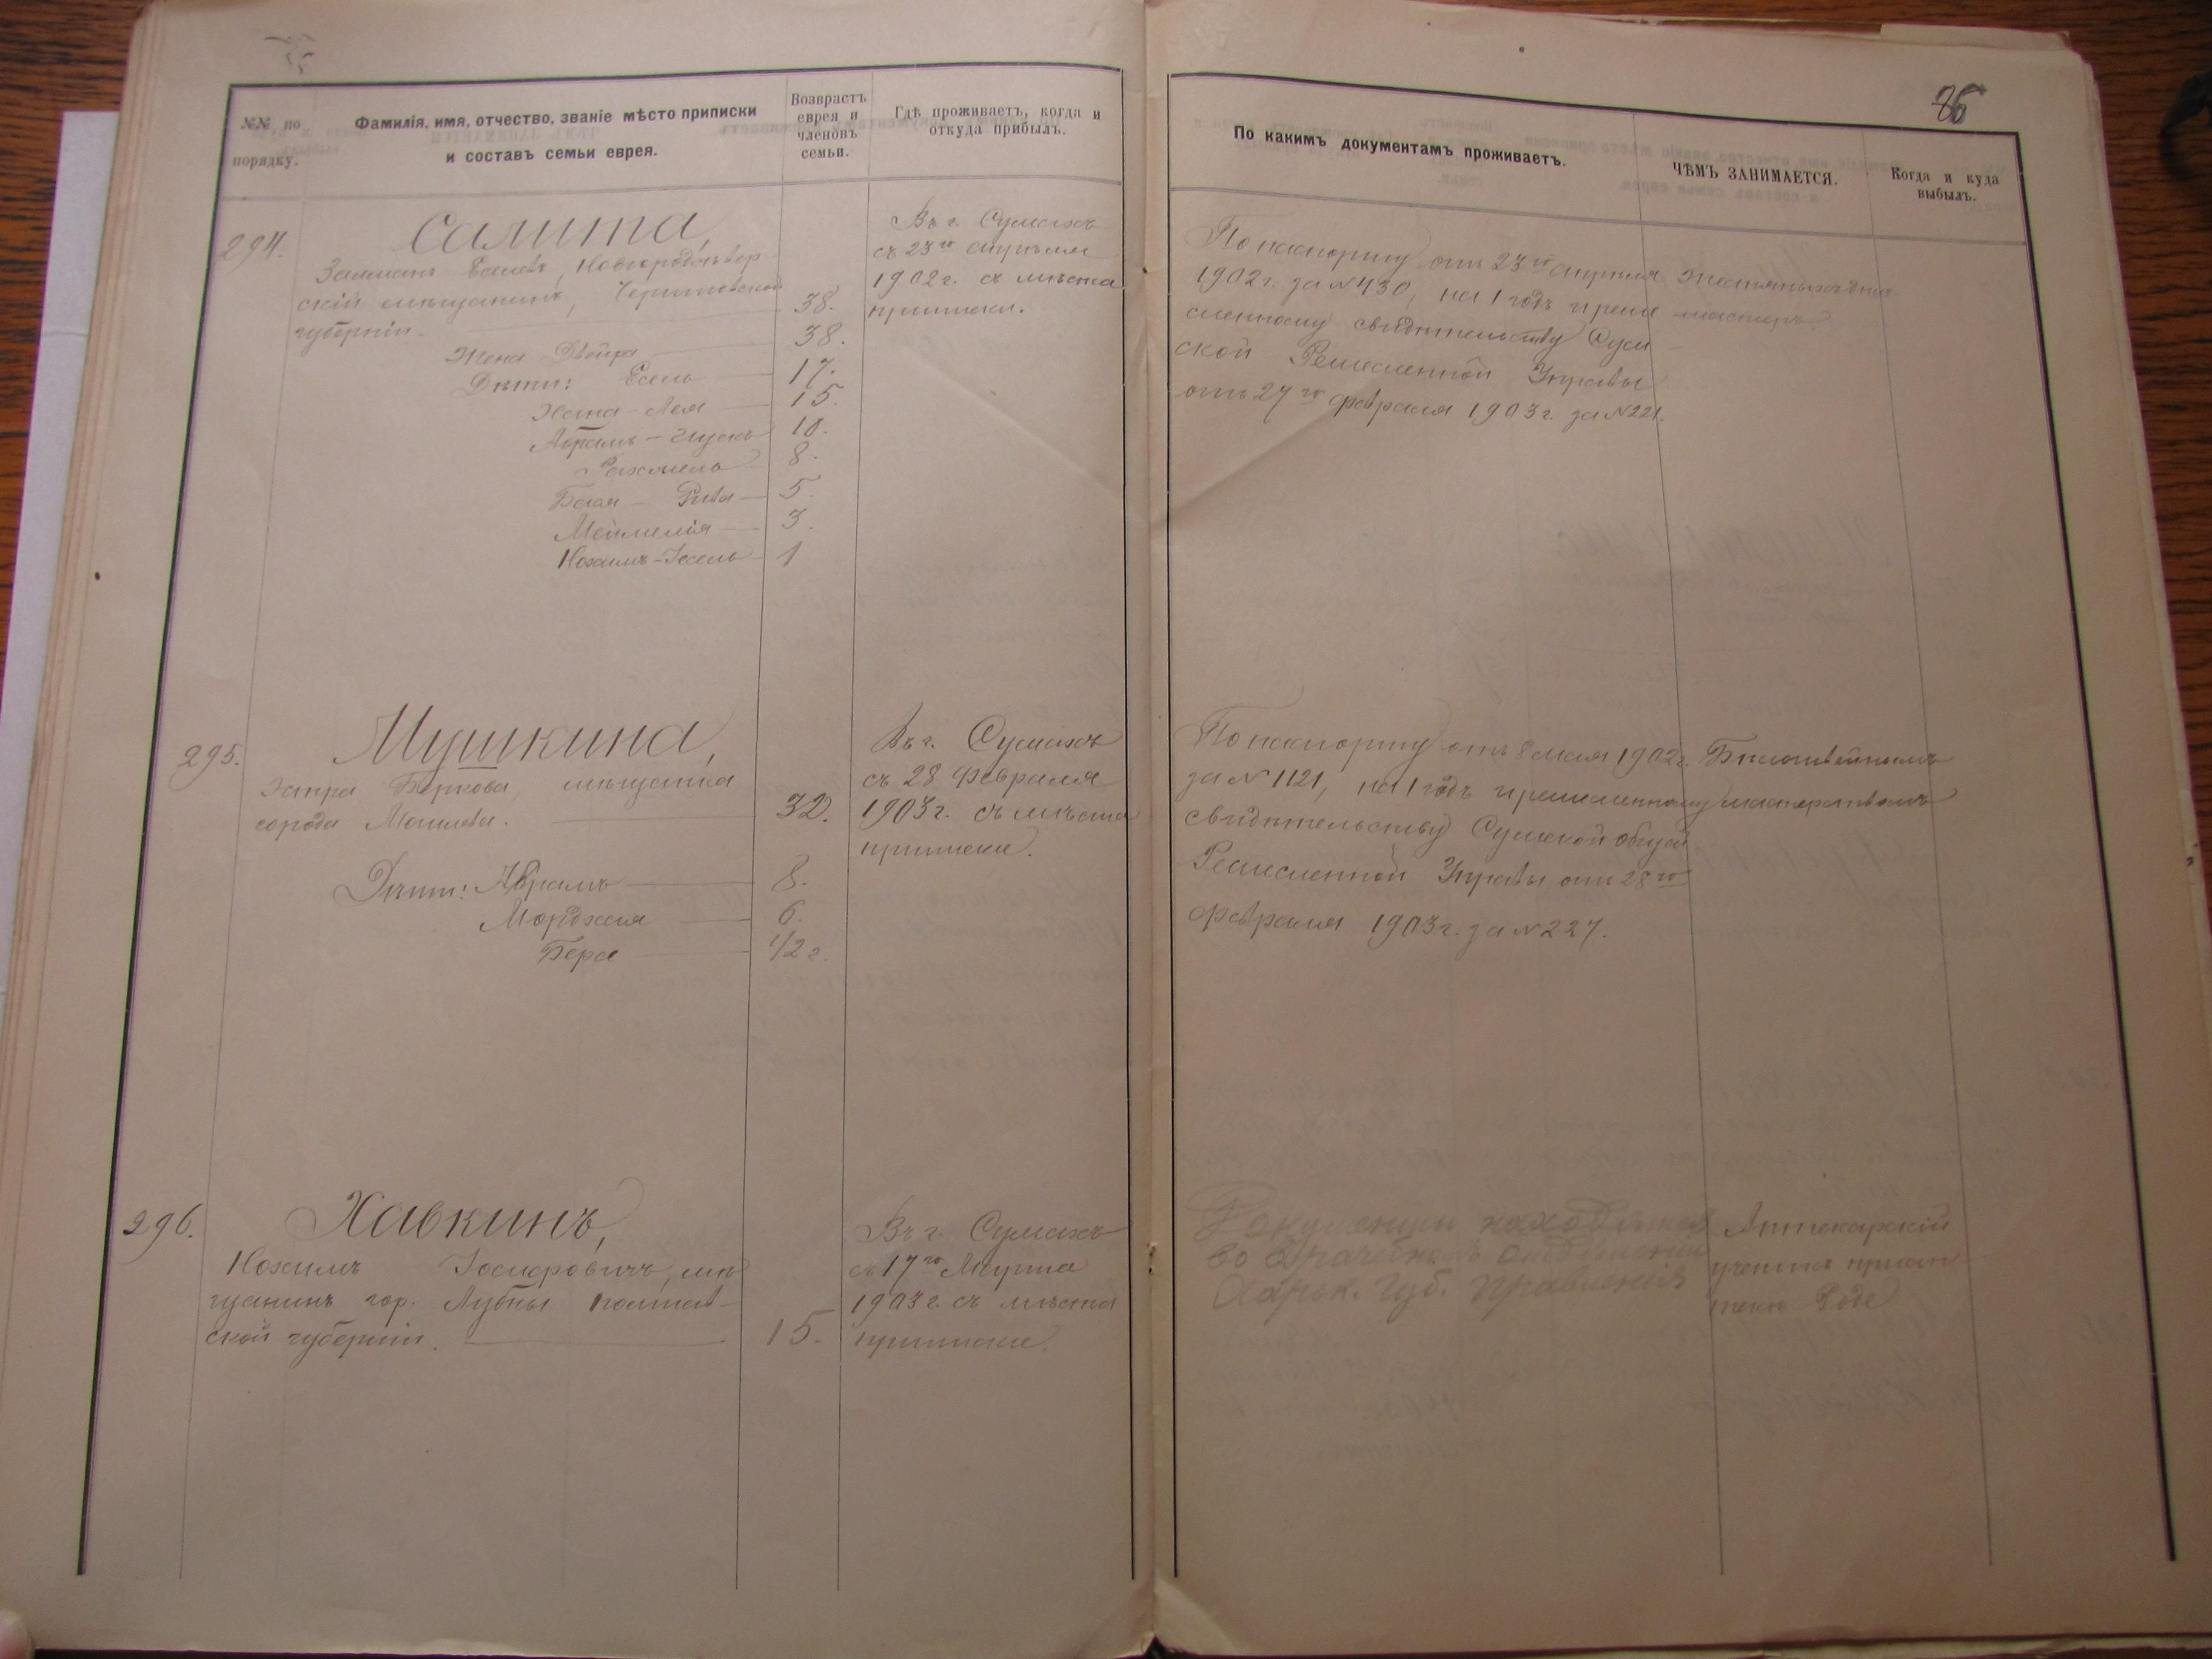 86
№№ по
порядку.
Фамилія, имя, отчество, званіе мѣсто приписки
и составъ семьи еврея.
Возврастъ
еврея и
членовъ
семьи.
Гдѣ проживаетъ, когда и
откуда прибылъ.
По какимъ документамъ проживаетъ.
ЧѢМЪ ЗАНИМАЕТСЯ.
Когда и куда
выбылъ.
294.
Салита,
Залманъ Еселевъ, Новгородсѣвер-
скій мѣщанинъ, Черниговской
губерніи. 38.
Жена Двейра 38.
Дѣти: Есель 17.
Хана-Лея 15.
Абрамъ-Гусенъ 10.
Рахмель 8.
Бася-Рива 5.
3.
Нохимъ-Іосель 1
Въ г. Сумахъ
съ 23го апрѣля
1902 г. съ мѣста
приписки.
По паспорту отъ 23го апрѣля
1902 г. за № 430, на 1 годъ и реме
сленному свидѣтельству Сум
ской Ремесленной Управы
отъ 27го февраля 1903 г. за № 221.
мастеръ.
295.
Мушкина,
Эстра Беркова, мѣщанка
города Могилева. 32.
Дѣти: Абрамъ 8.
Мордхея 6.
Бера 1/2 г.
Въ г. Сумахъ
съ 28 февраля
1903 г. съ мѣста
приписки.
По паспорту отъ 8 мая 1902 г.
за № 1121, на 1 годъ и ремесленному
свидѣтельству Сумской общей
Ремесленной Управы отъ 28го
февраля 1903 г. за № 227.
Бѣлошвейнымъ
мастерствомъ
296.
Хавкинъ,
Нохимъ Іосифовичъ, мѣ
щанинъ гор. Лубны Полтав-
ской губерніи. 15.
Въ г. Сумахъ
съ 17го Марта
1903 г. съ мѣста
приписки.
Документы находятся
во Врачебномъ отдѣленіи
Харьк. Губ. Правленія
Аптекарскій
ученикъ при апте
текѣ Роде